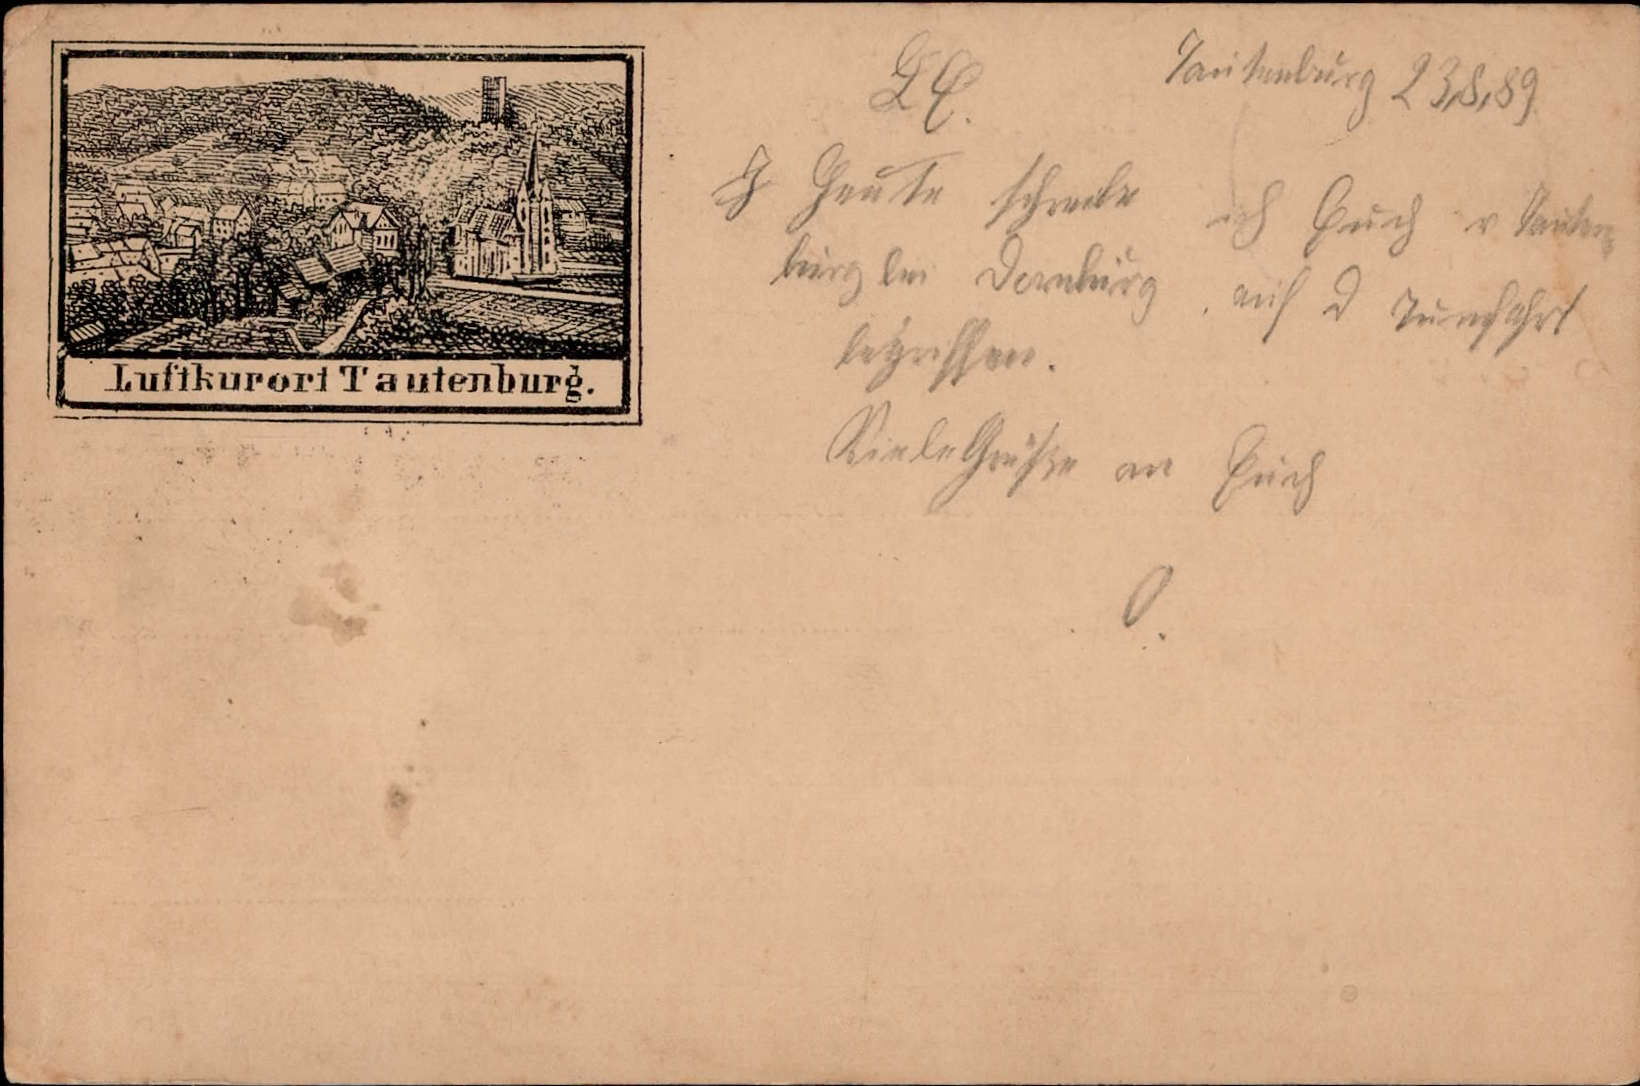 Luftkurort Tautenburg.
Tautenburg 23,8,89
L E.
Heute schreibe ich Euch v Tauten-
burg bei Dornburg, auf d Turnfahrt
begriffen.
Viele Grüße an Euch
O.